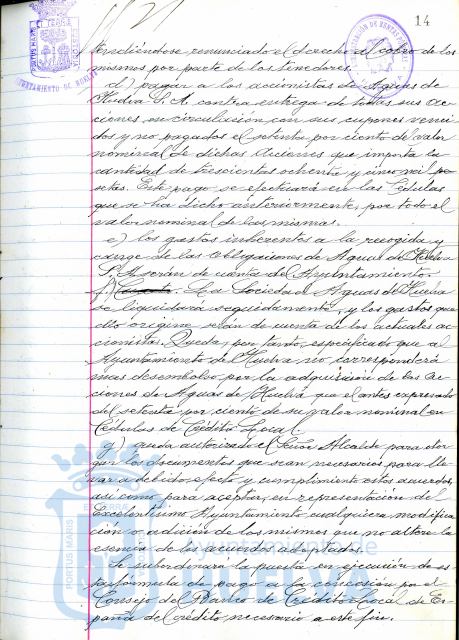 14
tendiéndose renunciado el derecho al cobro de los
mismos por parte de los tenedores.
d) pagar a los accionistas de Aguas de
Huelva S. A. contra entrega de todas sus ac-
ciones en circulación con sus cupones venci-
dos y no pagados el setenta por ciento del valor
nominal de dichas Acciones que importa la
cantidad de trescientos ochenta y un mil pe-
setas. Este pago se efectuará en las Cédulas
que se ha dicho anteriormente, por todo el
valor nominal de las mismas.
e) los gastos inherentes a la recogida y
cange de las obligaciones de Aguas de Huelva
S. A. serán de cuenta del Ayuntamiento.
f) La Sociedad Aguas de Huelva
se liquidará seguidamente, y los gastos que
ello origine serán de cuenta de los actuales ac-
cionistas. Queda, por tanto, especificado que al
Ayuntamiento de Huelva no corresponderá
mas desembolso por la adquisición de las ac-
ciones de Aguas de Huelva que el antes expresado
del setenta por ciento de su valor nominal en
Cédulas de Crédito Local.
g) queda autorizado el Señor Alcalde para otor-
gar los documentos que sean necesarios para lle-
var a debido efecto y cumplimiento estos acuerdos,
así como para aceptar, en representación del
Excelentísimo Ayuntamiento cualquiera modifica-
ción o adición de los mismos que no altere la
esencia de los acuerdos adoptados.
Se subordinará la puesta en ejecución de es-
ta fórmula de pago a la concesión por el
Consejo del Banco de Crédito Local de Es-
paña del crédito necesario a este fin.
PORTUS MARIS
ET TERRAE
CUSTODIA
AYUNTAMIENTO DE HUELVA
Ayuntamiento de
HUELVA